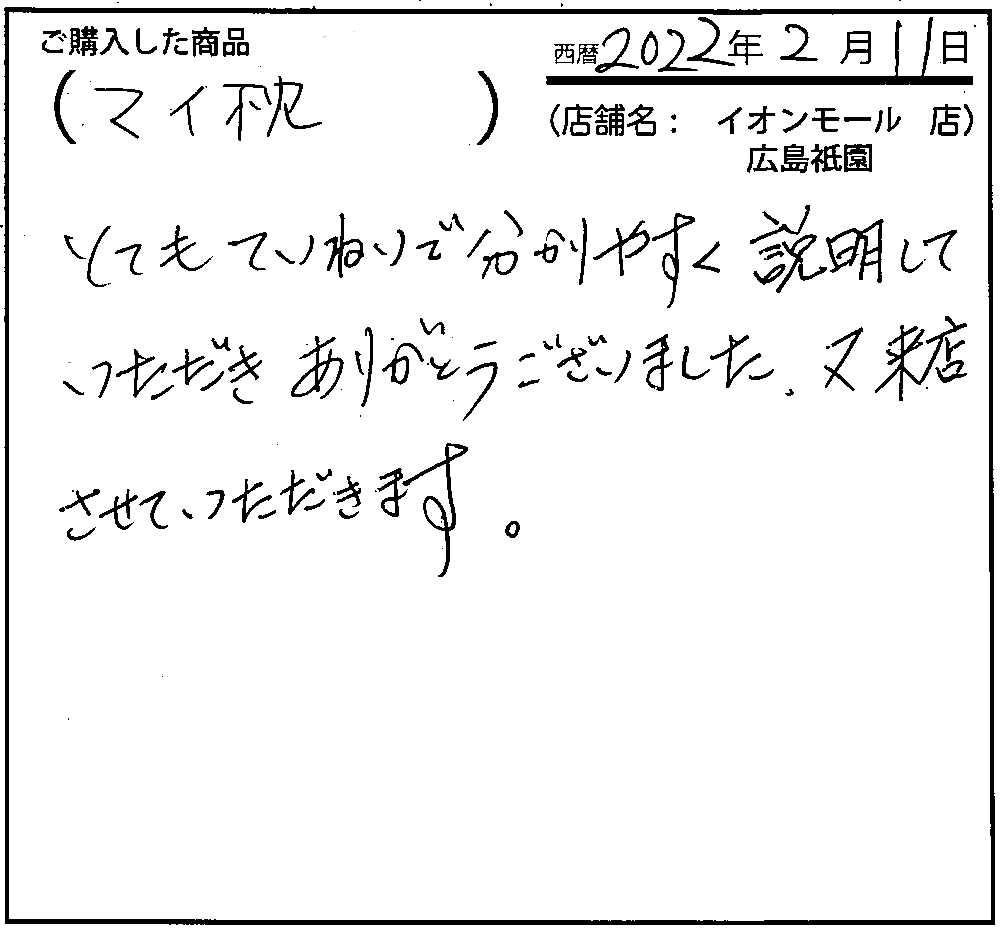 ご購入した商品
(マイ枕)
西暦2022年2月11日
(店舗名: イオンモール 店)
広島祇園
とてもていねいで分かりやすく説明して
いただきありがとうございました、又来店
させていただきます。